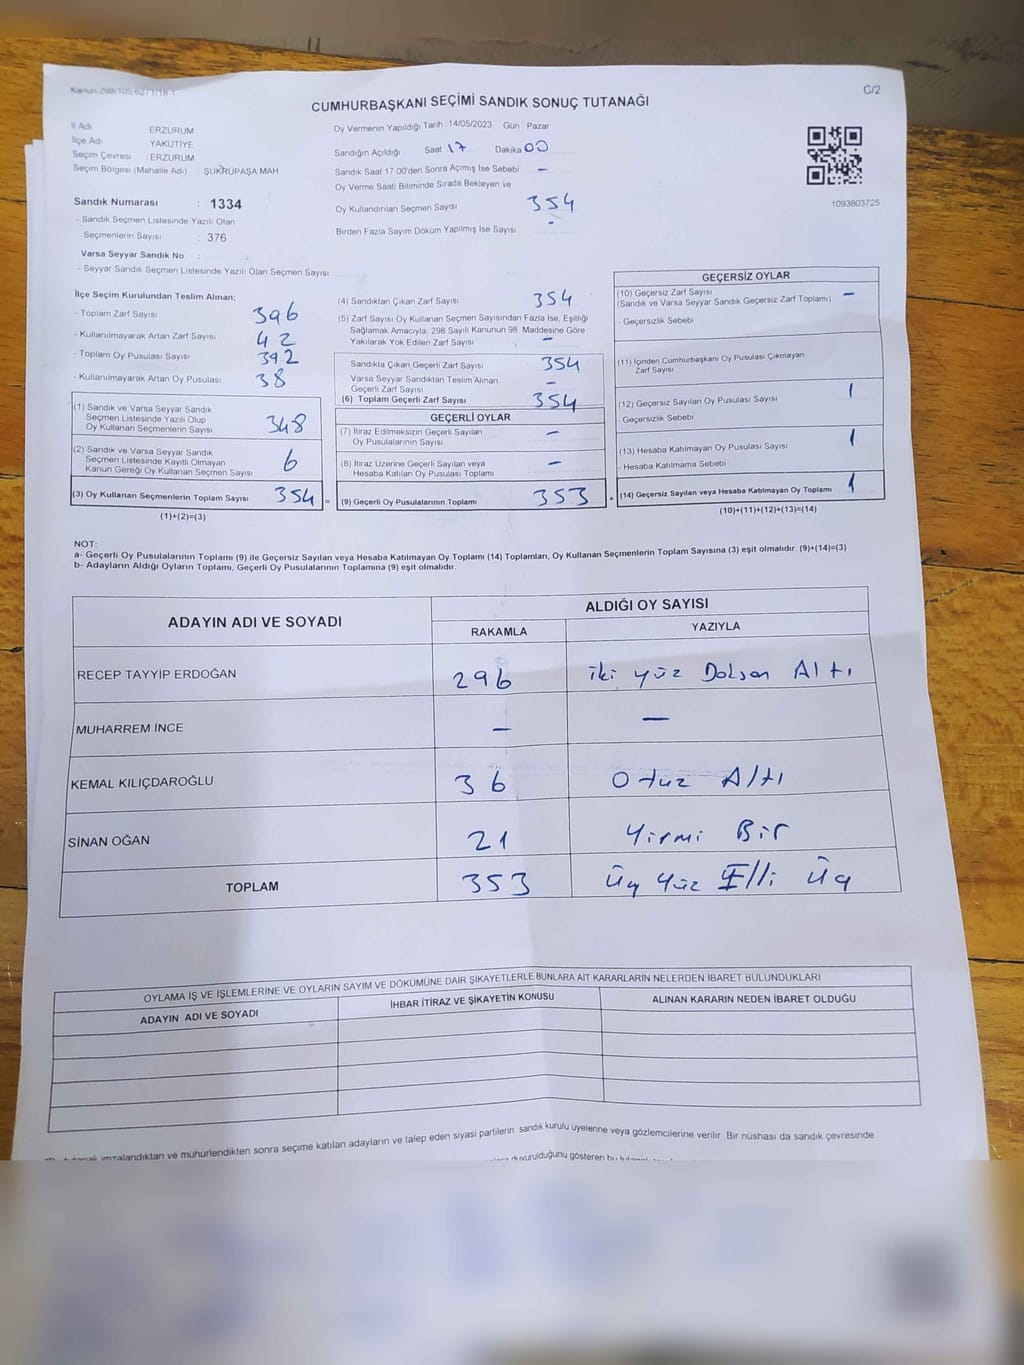 C/2
CUMHURBAŞKANI SEÇİMİ SANDIK SONUÇ TUTANAĞI
İl Adı ERZURUM
İlçe Adı YAKUTİYE
Seçim Çevresi : ERZURUM
Seçim Bölgesi (Mahalle Adı) ŞUKRÜPAŞA MAH
Sandık Numarası : 1334
- Sandık Seçmen Listesinde Yazılı Olan
Seçmenlerin Sayısı : 376
Varsa Seyyar Sandık No :
- Seyyar Sandık Seçmen Listesinde Yazılı Olan Seçmen Sayısı
Oy Vermenin Yapıldığı Tarih 14/05/2023 Gün : Pazar
Sandığın Açıldığı Saat 17 Dakika 00
Sandık Saat 17.00'den Sonra Açılmış İse Sebebi –
Oy Verme Saati Bitiminde Sırada Bekleyen ve
Oy Kullandırılan Seçmen Sayısı 354
Birden Fazla Sayım Döküm Yapılmış İse Sayısı -
1093803725
İlçe Seçim Kurulundan Teslim Alınan;
- Toplam Zarf Sayısı 396
- Kullanılmayarak Artan Zarf Sayısı 42
- Toplam Oy Pusulası Sayısı 392
- Kullanılmayarak Artan Oy Pusulası 38
(1) Sandık ve Varsa Seyyar Sandık
Seçmen Listesinde Yazılı Olup
Oy Kullanan Seçmenlerin Sayısı 348
(2) Sandık ve Varsa Seyyar Sandık
Seçmen Listesinde Kayıtlı Olmayan
Kanun Gereği Oy Kullanan Seçmen Sayısı 6
(3) Oy Kullanan Seçmenlerin Toplam Sayısı 354 =
(1)+(2)=(3)
(4) Sandıktan Çıkan Zarf Sayısı 354
(5) Zarf Sayısı Oy Kullanan Seçmen Sayısından Fazla İse, Eşitliği
Sağlamak Amacıyla, 298 Sayılı Kanunun 98. Maddesine Göre
Yakılarak Yok Edilen Zarf Sayısı –
Sandıkta Çıkan Geçerli Zarf Sayısı 354
Varsa Seyyar Sandıktan Teslim Alınan
Geçerli Zarf Sayısı –
(6) Toplam Geçerli Zarf Sayısı 354
GEÇERLİ OYLAR
(7) İtiraz Edilmeksizin Geçerli Sayılan
Oy Pusulalarının Sayısı –
(8) İtiraz Üzerine Geçerli Sayılan veya
Hesaba Katılan Oy Pusulası Toplamı –
(9) Geçerli Oy Pusulalarının Toplamı 353 +
GEÇERSİZ OYLAR
(10) Geçersiz Zarf Sayısı –
(Sandık ve Varsa Seyyar Sandık Geçersiz Zarf Toplamı)
- Geçersizlik Sebebi
(11) İçinden Cumhurbaşkanı Oy Pusulası Çıkmayan
Zarf Sayısı
(12) Geçersiz Sayılan Oy Pusulası Sayısı 1
- Geçersizlik Sebebi
(13) Hesaba Katılmayan Oy Pusulası Sayısı 1
- Hesaba Katılmama Sebebi
(14) Geçersiz Sayılan veya Hesaba Katılmayan Oy Toplamı 1
(10)+(11)+(12)+(13)=(14)
NOT:
a- Geçerli Oy Pusulalarının Toplamı (9) ile Geçersiz Sayılan veya Hesaba Katılmayan Oy Toplamı (14) Toplamları, Oy Kullanan Seçmenlerin Toplam Sayısına (3) eşit olmalıdır. (9)+(14)=(3)
b- Adayların Aldığı Oyların Toplamı, Geçerli Oy Pusulalarının Toplamına (9) eşit olmalıdır.
ADAYIN ADI VE SOYADI ALDIĞI OY SAYISI
RAKAMLA YAZIYLA
RECEP TAYYİP ERDOĞAN 296 iki yüz Doksan Altı
MUHARREM İNCE – –
KEMAL KILIÇDAROĞLU 36 Otuz Altı
SİNAN OĞAN 21 Yirmi Bir
TOPLAM 353 Üç Yüz Elli Üç
OYLAMA İŞ VE İŞLEMLERİNE VE OYLARIN SAYIM VE DÖKÜMÜNE DAİR ŞİKAYETLERLE BUNLARA AİT KARARLARIN NELERDEN İBARET BULUNDUKLARI
ADAYIN ADI VE SOYADI İHBAR İTİRAZ VE ŞİKAYETİN KONUSU ALINAN KARARIN NEDEN İBARET OLDUĞU
imzalandıktan ve mühürlendikten sonra seçime katılan adayların ve talep eden siyasi partilerin sandık kurulu üyelerine veya gözlemcilerine verilir. Bir nüshası da sandık çevresinde
duyurulduğunu gösteren bu